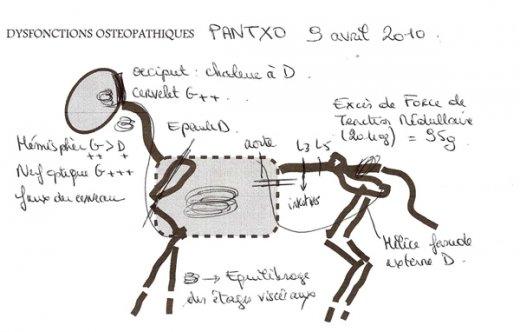 DYSFONCTIONS OSTEOPATHIQUES PANTXO 9 avril 2010.
occiput : chaleur à D.
cervelet G++.
Excès de Force de
Tension Médullaire
(20 kg) = 95g
Epaule D.
aorte
L3 L5
Hémisphèr G > D
++ +
Nerf optique G +++
faux du cerveau
Hélice fascule
externe D.
→ Equilibrage
des étages viscéraux